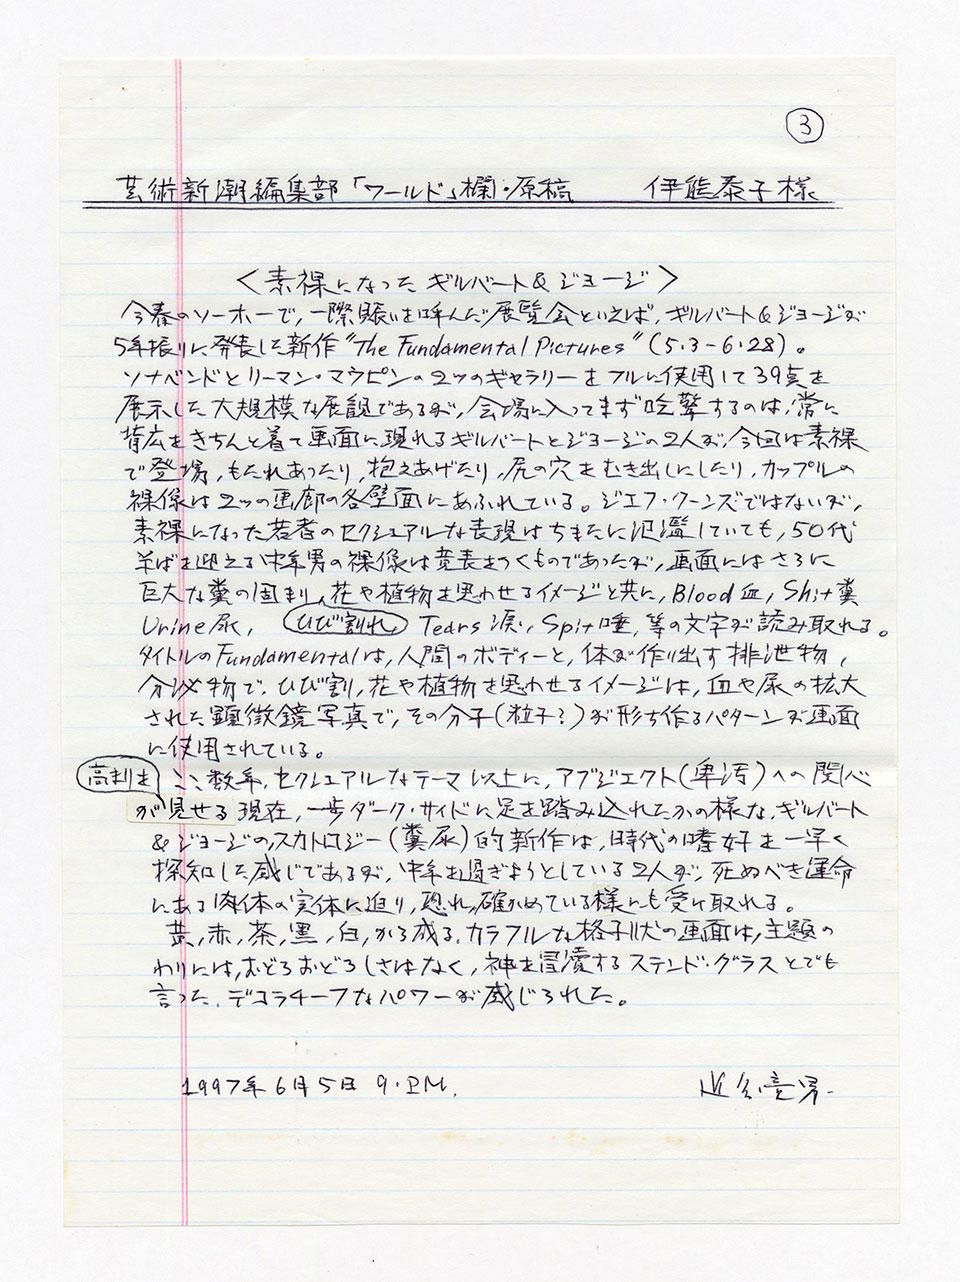 ③
芸術新潮編集部「ワールド」欄・原稿 伊熊泰子様
＜素裸になったギルバート&ジョージ＞
今春のソーホーで、一際賑いを呼んだ展覧会といえば、ギルバート&ジョージが
5年振りに発表した新作"The Fundamental Pictures"(5.3-6.28)。
ソナベンドとリーマン・マウピンの2ツのギャラリーをフルに使用して39点を
展示した大規模な展観であるが、会場に入ってまず吃驚するのは、常に
背広をきちんと着て画面に現れるギルバートとジョージの2人が、今回は素裸
で登場、もたれあったり、抱えあげたり、尻の穴をむき出しにしたり、カップルの
裸像は2ツの画廊の各壁面にあふれている。ジェフ・クーンズではないが、
素裸になった若者のセクシュアルな表現はちまたに氾濫していても、50代
半ばを迎える中年男の裸像は意表をつくものであったが、画面にはさらに
巨大な糞の固まり、花や植物を思わせるイメージと共に、Blood血, Shit糞
Urine尿, ひび割れ Tears涙, Spit唾, 等の文字が読み取れる。
タイトルのFundamentalは、人間のボディーと、体が作り出す排泄物、
分泌物で、ひび割、花や植物を思わせるイメージは、血や尿の拡大
された顕微鏡写真で、その分子(粒子?)が形ち作るパターンが画面
に使用されている。
高まりを ここ数年、セクシュアルなテーマ以上に、アブジェクト(卑汚)への関心
が見せる 現在、一歩ダーク・サイドに足を踏み込れたかの様な、ギルバート
&ジョージの、スカトロジー(糞尿)的新作は、時代の嗜好を一早く
探知した感じであるが、中年を過ぎようとしている2人が、死ぬべき運命
にある肉体の実体に迫り、恐れ、確かめている様にも受け取れる。
黄、赤、茶、黒、白、から成る、カラフルな格子状の画面は、主題の
わりには、おどろおどろしさはなく、神を冒瀆するステンド・グラスとでも
言った、デコラチーフなパワーが感じられた。
1997年6月5日 9.PM.